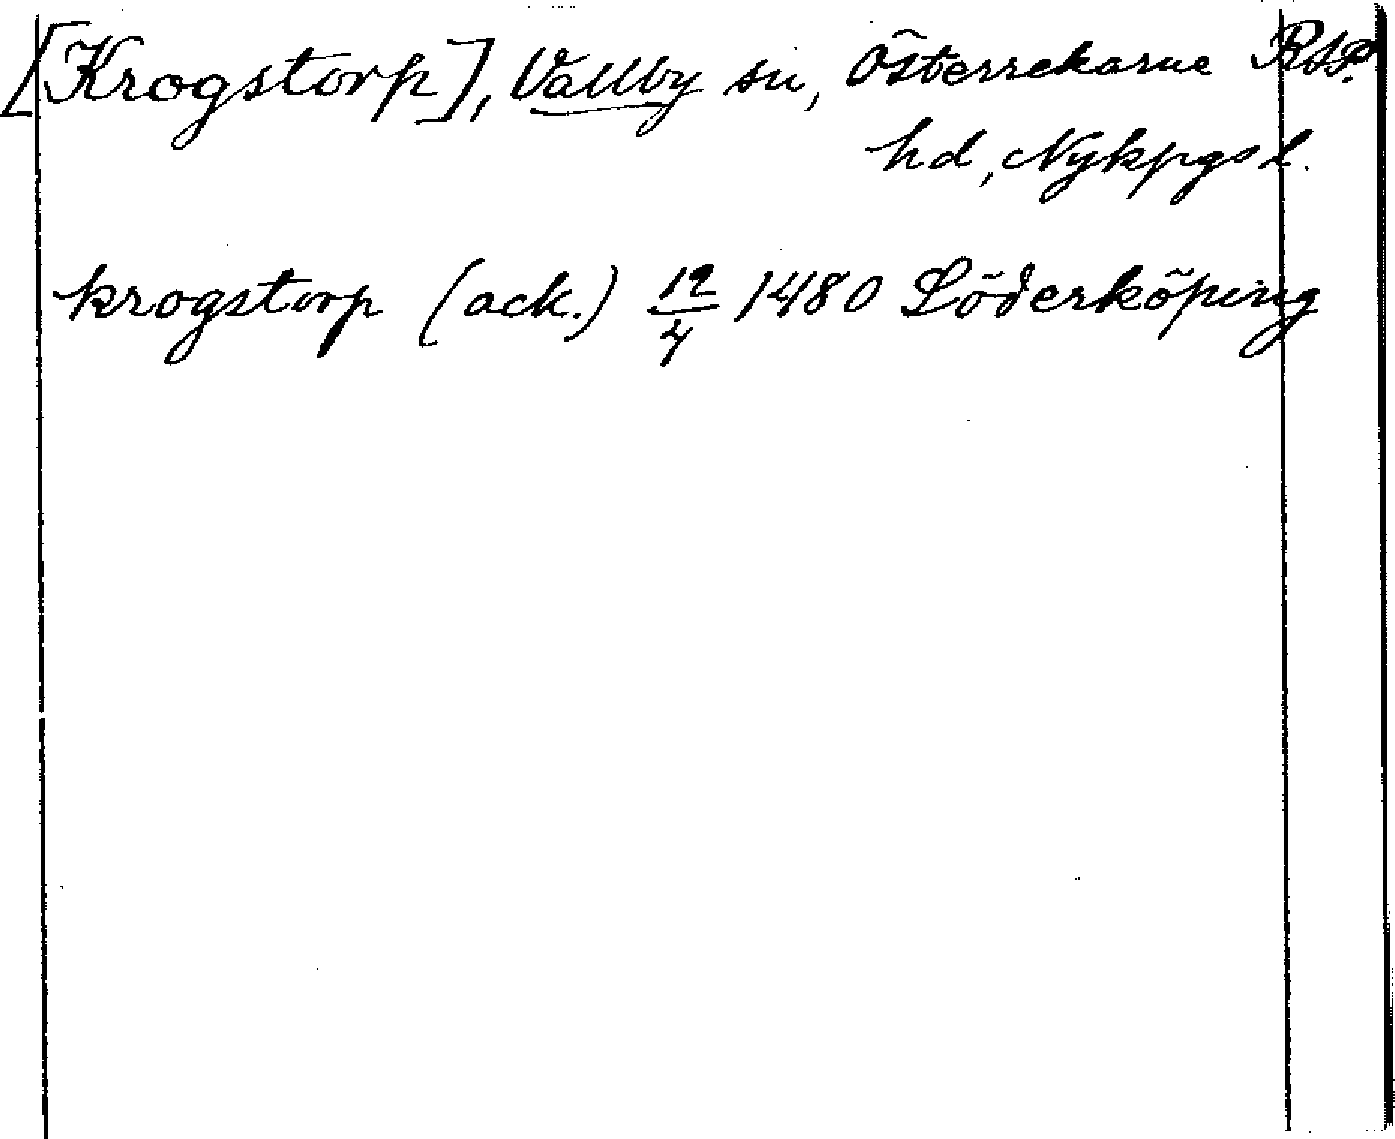 [Krogstorp], Vallby sn, Österrekarne RAP.
hd, Nykpgs l.
krogstorp (ack.) 12/4 1480 Söderköping